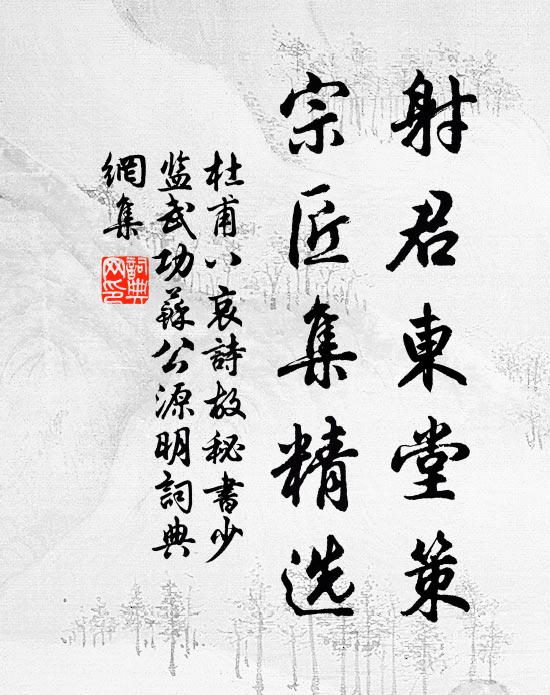 射君東堂策
宗匠集精选
杜甫八哀詩故秘書少
监武功蘇公源明詞典
網集
詞典网印